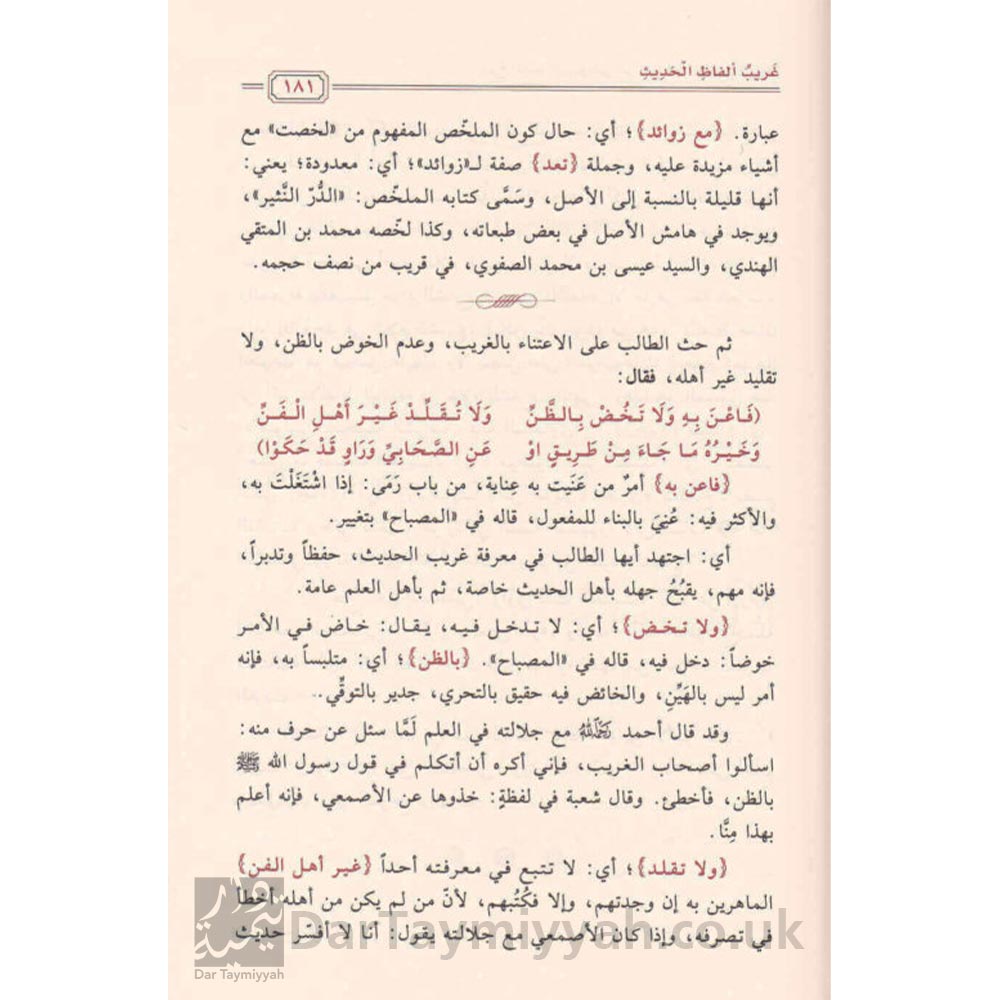 غَرِيبُ ألفَاظِ الْحَدِيثِ
١٨١
عبارة. {مع زوائد}؛ أي: حال كون الملخّص المفهوم من «لخصت» مع
أشياء مزيدة عليه، وجملة {تعد} صفة لـ«زوائد»؛ أي: معدودة؛ يعني:
أنها قليلة بالنسبة إلى الأصل، وسَمَّى كتابه الملخّص: «الدُّرّ النَّثير»،
ويوجد في هامش الأصل في بعض طبعاته، وكذا لخّصه محمد بن المتقي
الهندي، والسيد عيسى بن محمد الصفوي، في قريب من نصف حجمه.
ثم حث الطالب على الاعتناء بالغريب، وعدم الخوض بالظن، ولا
تقليد غير أهله، فقال:
(فَاعْنَ بِهِ وَلَا تَخُضْ بِالظَّنِّ وَلَا تُقَلِّدْ غَيْرَ أَهْلِ الْفَنِّ
وَخَيْرُهُ مَا جَاءَ مِنْ طَرِيقٍ اوْ عَنِ الصَّحَابِيِّ وَرَاوٍ قَدْ حَكَوْا)
{فاعن به} أمرٌ من عَنَيت به عِناية، من باب رَمَى: إذا اشْتَغَلْتَ به،
والأكثر فيه: عُنِيَ بالبناء للمفعول، قاله في «المصباح» بتغيير.
أي: اجتهد أيها الطالب في معرفة غريب الحديث، حفظاً وتدبراً،
فإنه مهم، يقبُحُ جهله بأهل الحديث خاصة، ثم بأهل العلم عامة.
{ولا تخض}؛ أي: لا تدخل فيه، يقال: خاض في الأمر
خوضاً: دخل فيه، قاله في «المصباح». {بالظن}؛ أي: متلبساً به، فإنه
أمر ليس بالهَيِّنِ، والخائض فيه حقيق بالتحري، جدير بالتوقِّي..
وقد قال أحمد رَحِمَهُ اللهُ مع جلالته في العلم لَمَّا سئل عن حرف منه:
اسألوا أصحاب الغريب، فإني أكره أن أتكلم في قول رسول الله ﷺ
بالظن، فأخطئ. وقال شعبة في لفظةٍ: خذوها عن الأصمعي، فإنه أعلم
بهذا مِنَّا.
{ولا تقلد}؛ أي: لا تتبع في معرفته أحداً {غير أهل الفن}
الماهرين به إن وجدتهم، وإلا فكُتُبهم، لأنّ من لم يكن من أهله أخطأ
في تصرفه، وإذا كان الأصمعي مع جلالته يقول: أنا لا أفسّر حديث
DarTaymiyyah.co.uk
Dar Taymiyyah